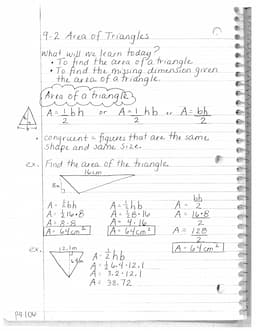 9-2 Area of Triangles
What will we learn today?
• To find the area of a triangle
• To find the missing dimension given
the area of a triangle.
Area of a triangle
A = 1/2 bh or A = 1/2 hb or A = bh/2
• congruent = figures that are the same
shape and same size.
ex. Find the area of the triangle.
16cm
8m
A = 1/2 bh
A = 1/2 16·8
A = 8·8
A = 64cm²
A = 1/2 hb
A = 1/2 8·16
A = 4·16
A = 64cm²
A = bh/2
A = 16·8/2
A = 128/2
A = 64cm²
ex.
12.1m
6.4m
A = 1/2 hb
A = 1/2 6.4·12.1
A = 3.2·12.1
A = 38.72
pg 104